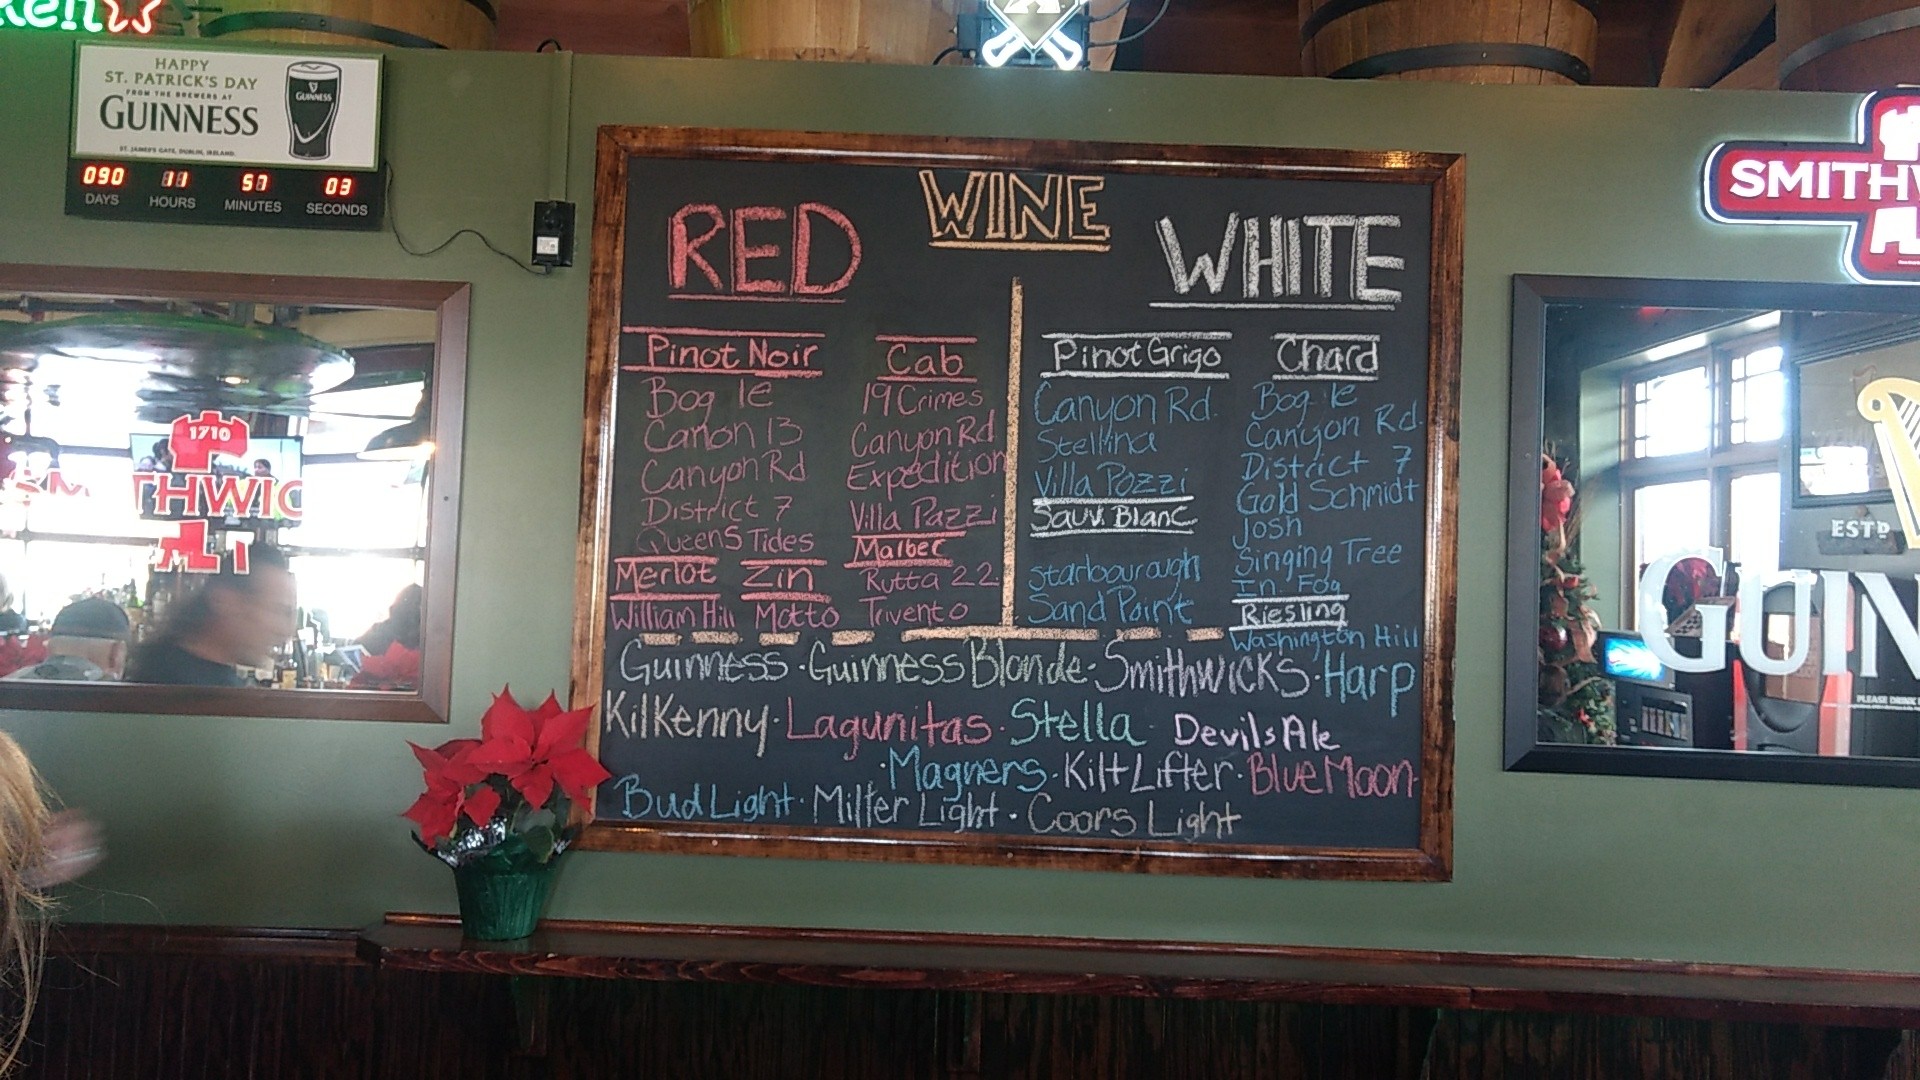 HAPPY
ST. PATRICK'S DAY
FROM THE BREWERS AT
GUINNESS
ST. JAMES'S GATE, DUBLIN, IRELAND.
GUINNESS
090 11 57 03
DAYS HOURS MINUTES SECONDS
WINE
RED
WHITE
Pinot Noir
Bogle
Canon 13
Canyon Rd
District 7
Queens Tides
Merlot
William Hill
Zin
Motto
Cab
19 Crimes
Canyon Rd
Expedition
Villa Pazzi
Malbec
Rutta 22
Trivento
Pinot Grigo
Canyon Rd.
Stellina
Villa Pozzi
Sauv. Blanc
Starbourough
Sand Point
Chard
Bogle
Canyon Rd.
District 7
Gold Schmidt
Josh
Singing Tree
In Fog
Riesling
Washington Hill
Guinness · Guinness Blonde · Smithwicks · Harp
Kilkenny · Lagunitas · Stella · Devils Ale
· Magners · Kilt Lifter · Blue Moon
Bud Light · Miller Light · Coors Light
1710
THWIC
SMITHW
ESTD
GUIN
PLEASE DRINK